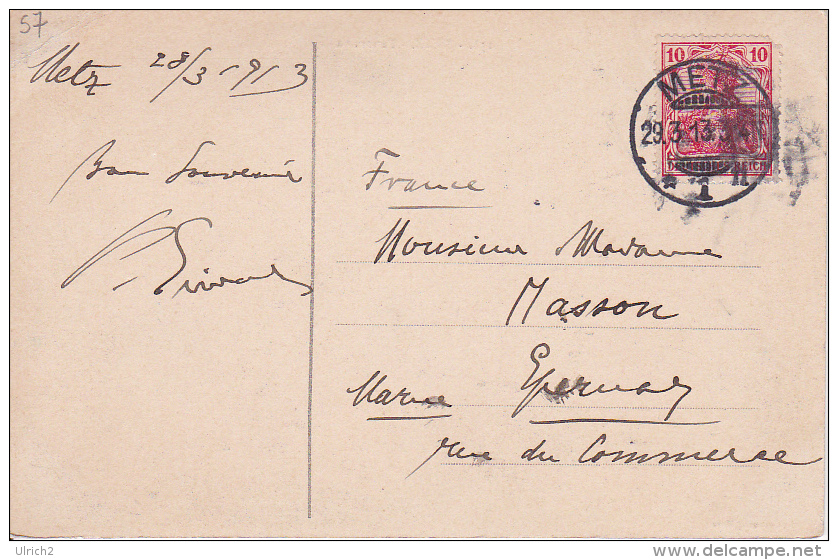 57
Metz 28/3 1913
Bon Souvenir
France
Monsieur Madame
Masson
Epernay
Marne
rue du Commerce
10 10
METZ
29.3.13.
* 1 n
DEUTSCHES REICH
Ulrich2
www.delcampe.net